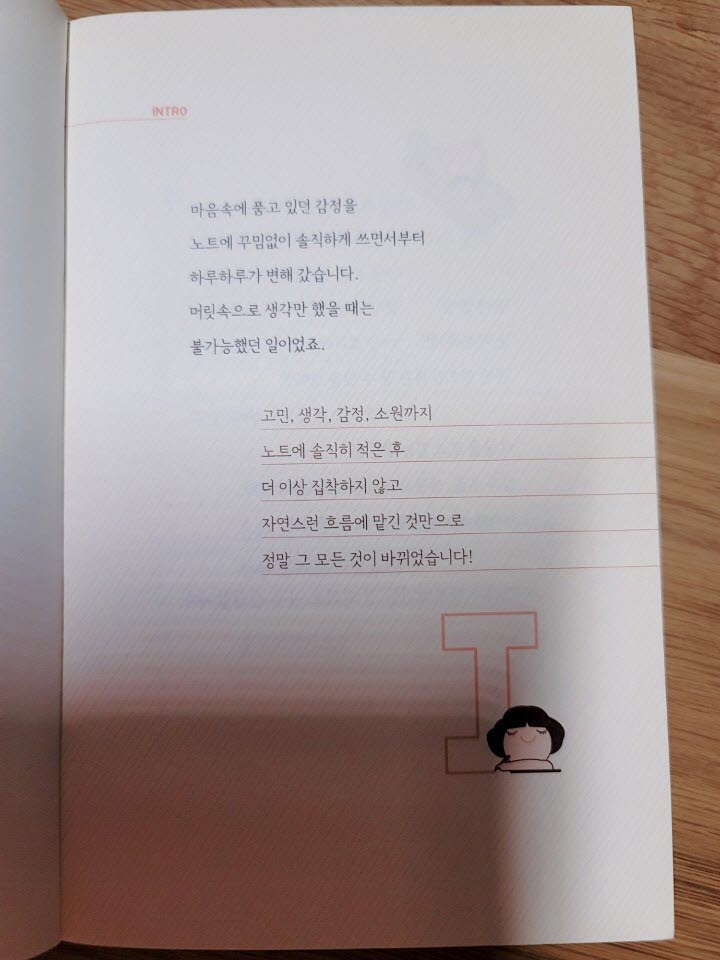 INTRO
마음속에 품고 있던 감정을
노트에 꾸밈없이 솔직하게 쓰면서부터
하루하루가 변해 갔습니다.
머릿속으로 생각만 했을 때는
불가능했던 일이었죠.
고민, 생각, 감정, 소원까지
노트에 솔직히 적은 후
더 이상 집착하지 않고
자연스런 흐름에 맡긴 것만으로
정말 그 모든 것이 바뀌었습니다!
I